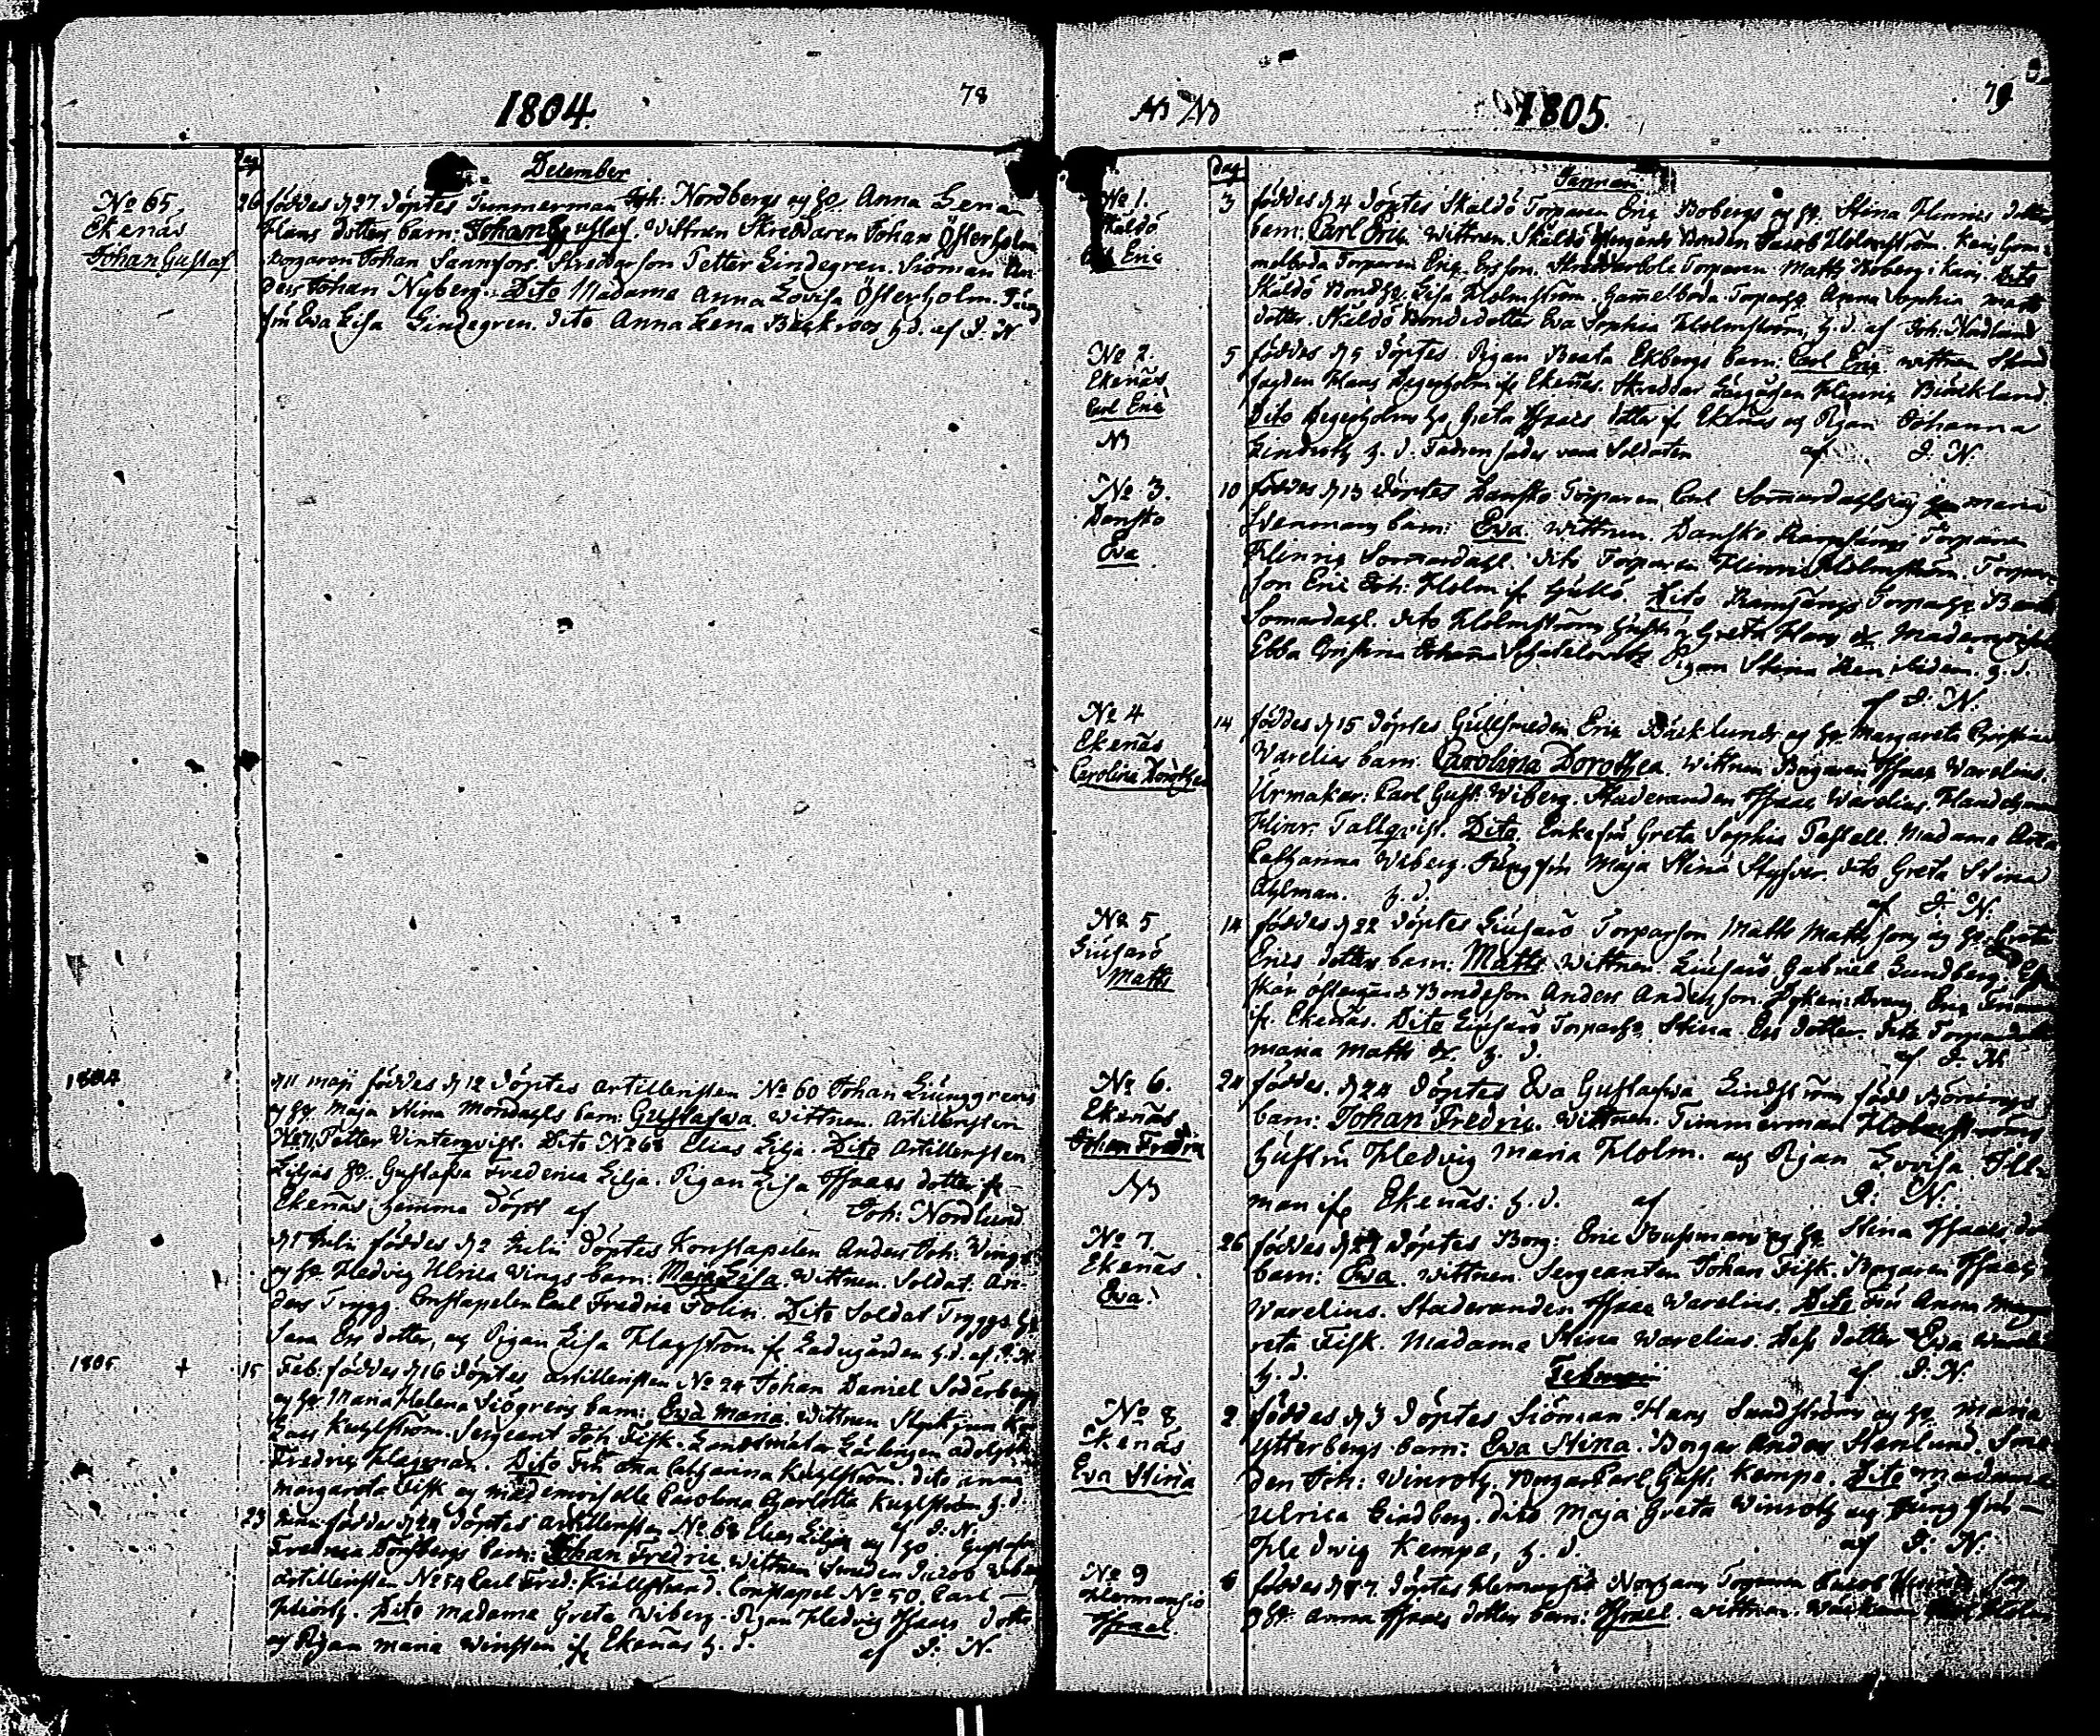 1804.
78
Dag
December
No 65
Ekenäs
Johan Gustaf
26 föddes d 27 döptes Timmerman Joh: Nordbergs og h: Anna Lena
Hans dotters barn: Johan Gustaf. Wittnen Skreddaren Johan Österholm
Borgaren Johan Sannfors. Skreddarson Petter Lindegren. Sjöman An-
ders Johan Nyberg. Dito Madama Anna Lovisa Österholm.
Eva Lisa Lindegren. dito Anna Lena Beckroos h. d. af J: N.
1804
d 11 maji föddes d 12 döptes artilleristen No 60 Johan Liunggrens
og h: Maja Stina Mondahls barn: Gustafva. Wittnen. Artilleristen
No 71 Petter Vinterqvist. Dito No 68 Elias Lilja. Dito Artilleristen
Liljas h: Gustafva Frederica Lilja. Pigan Lisa Isaacs dotter if:
Ekenäs hemma döpt af Joh: Nordlund
d 1 Julii föddes d 2 Julii döptes Konstapelen Anders Joh: Wings
og h: Hedvig Ulrica Wings barn: Maja Lisa. Wittnen. Soldat. An-
ders Trygg. Constapelen Carl Fredric Folin. Dito Soldat Tryggs h:
Sara Ers dotter, og Pigan Lisa Hagström if Ladugården h. d. af J. N.
1805 + 15 Feb: föddes d 16 döptes artilleristen No 24 Johan Daniel Söderberg
og h: Maria Helena Siögrens barn: Eva Maria. Wittnen
Kuhlström. Sergeant Joh: Fisk. Landtmätar Lärlingen Adolph
Fredric Hageman. Dito Fru Catharina Kuhlström. dito Anna
Margareta Fisk og Mademoiselle Carolina Charlotta Kuhlström h. d.
af J: N.
23 föddes d 24 döptes Artilleristen No 68 Elias Liljas og h: Gustafva
Fredrica Forsbergs barn: Johan Fredric. Wittnen Smeden Jacob
Artilleristen No 54 Carl Fred: Constapel No 50. Carl
Dito Madama Greta Wiberg. Pigan Hedvig Isaacs dotter
og Pigan Maria Winsten if Ekenäs h. d. af J: N.
NB NB
1805.
79
Dag
Januari
No 1.
Skåldö
Carl Eric
3 föddes d 4 döptes Skåldö Torparen Eric Bobergs og h: Stina Hinrics dotters
barn: Carl Eric. Wittnen. Skåldö Bonden Jacob Holmström.
Torparen Eric Ersson. Torparen Matts Boberg i Karis. Dito
Skåldö Bondh: Lisa Holmström. Gammelboda Torparh: Anna Sophia Matts
dotter. Skåldö Bondedotter Eva Sophia Holmström, h. d. af Joh: Nordlund
No 2.
Ekenäs
Carl Eric
NB
5 föddes d 5 döptes Pigan Beata Ekbergs barn: Carl Eric Wittnen
Hans Degerholm if Ekenäs. Skreddar Lärgåssen Henric Bäcklund.
Dito Degerholms h: Greta Isaacs dotter if Ekenäs og Pigan Johanna
Lindroth h. d. Fadren sades vara Soldaten af J: N.
No 3.
Danskö
Eva
10 föddes d 13 döptes Danskö Torparen Carl Sommardahls og h: Maria
Wenmans barn: Eva. Wittnen. Danskö Torparen
Henric Sommardahl. dito Torparen Henric Holmström. Torpar-
son Eric Joh: Holm if Dito Torparh:
Sommardahl. dito Holmströms hustru Greta Hans dr. Mademoiselle
Ebba Christina Johanna Pigan Stina ibidem. h. d.
af J: N.
No 4
Ekenäs
Carolina Dorothea
14 föddes d 15 döptes Gullsmeden Eric Bäcklunds og h: Margareta Christina
Warelias barn: Carolina Dorothea. Wittnen Borgaren Isaac Warelius.
Urmakar: Carl Gust: Wiberg. Studeranden Isaac Warelius.
Hinr: Tallqvist. Dito. Enkefru Greta Sophia Tastell. Madama
Catharina Wiberg. Jungfru Maja Stina Styfver. dito Greta Stina
Ahlman. h. d. af J: N.
No 5
Liusarö
Matts
14 föddes d 22 döptes Liusarö Torparson Matts Mattssons og h: Greta
Erics dotters barn: Matts. Wittnen. Liusarö Gabriel Lundberg.
Bondeson Anders Andersson. Dräng Eric
if. Ekenäs. Dito Liusarö Torparh: Stina Ers dotter. dito
Maria Matts dr. h. d. af J: N.
No 6.
Ekenäs
Johan Fredric
NB
24 föddes. d 24 döptes Eva Gustafva Lindström född Bönings
barn: Johan Fredric. Wittnen. Timmerman Holmströms
hustru Hedvig Maria Holm. og Pigan Lovisa
man if Ekenäs: h. d. af J: N.
No 7.
Ekenäs.
Eva.
26 föddes d 27 döptes Borg: Eric Bussmans og h: Stina Isaacs dr
barn: Eva. Wittnen. Sergeanten Johan Fisk. Borgaren Isaac
Warelius. Studeranden Isaac Warelius. Dito Fru Anna Marga-
reta Fisk. Madama Stina Warelius. Dess dotter Eva
h. d. af J: N.
Februari
No 8
Ekenäs
Eva Stina
2 föddes d 3 döptes Siöman Hans Sundströms og h: Maria
Ytterbergs barn: Eva Stina. Borgar Anders Stenlund. Sme-
den Joh: Winroth. Borgar Carl Gust: Kempe. Dito Madama
Ulrica Lindberg. dito Maja Greta Winroth og Jungfru
Hedwig Kempe, h. d. af J: N.
No 9
Hermansiö
Israel
6 föddes d 7 döptes Hermansiö Torparen Jacob
og h: Anna Isaacs dotters barn: Israel. Wittnen.